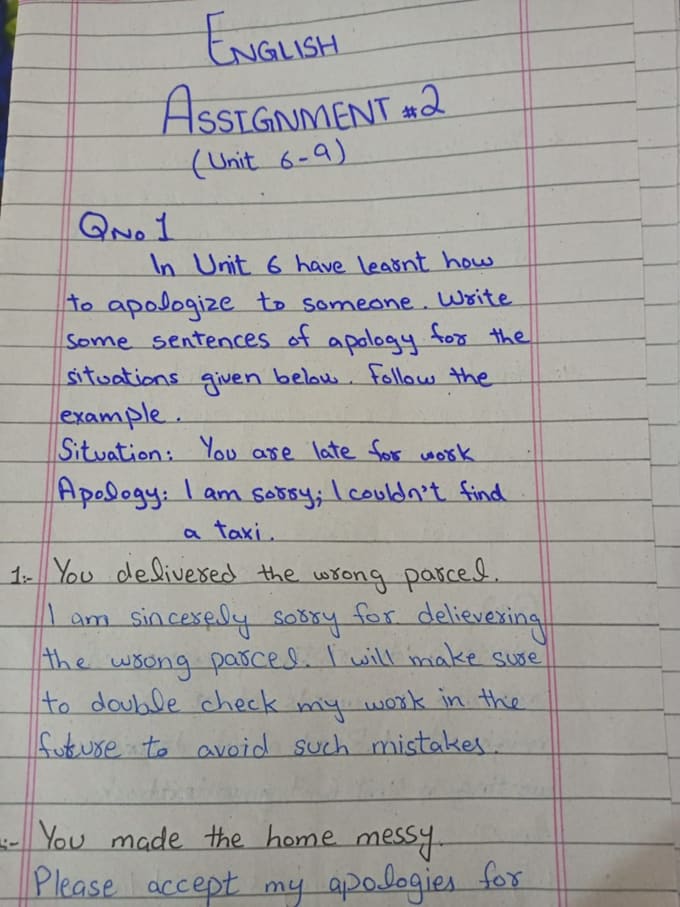 ENGLISH
ASSIGNMENT #2
(Unit 6-9)
QNo 1
In Unit 6 have learnt how
to apologize to someone. Write
some sentences of apology for the
situations given below. Follow the
example.
Situation: You are late for work
Apology: I am sorry; I couldn't find
a taxi.
1:- You delivered the wrong parcel.
I am sincerely sorry for delievering
the wrong parcel. I will make sure
to double check my work in the
future to avoid such mistakes.
:- You made the home messy.
Please accept my apologies for